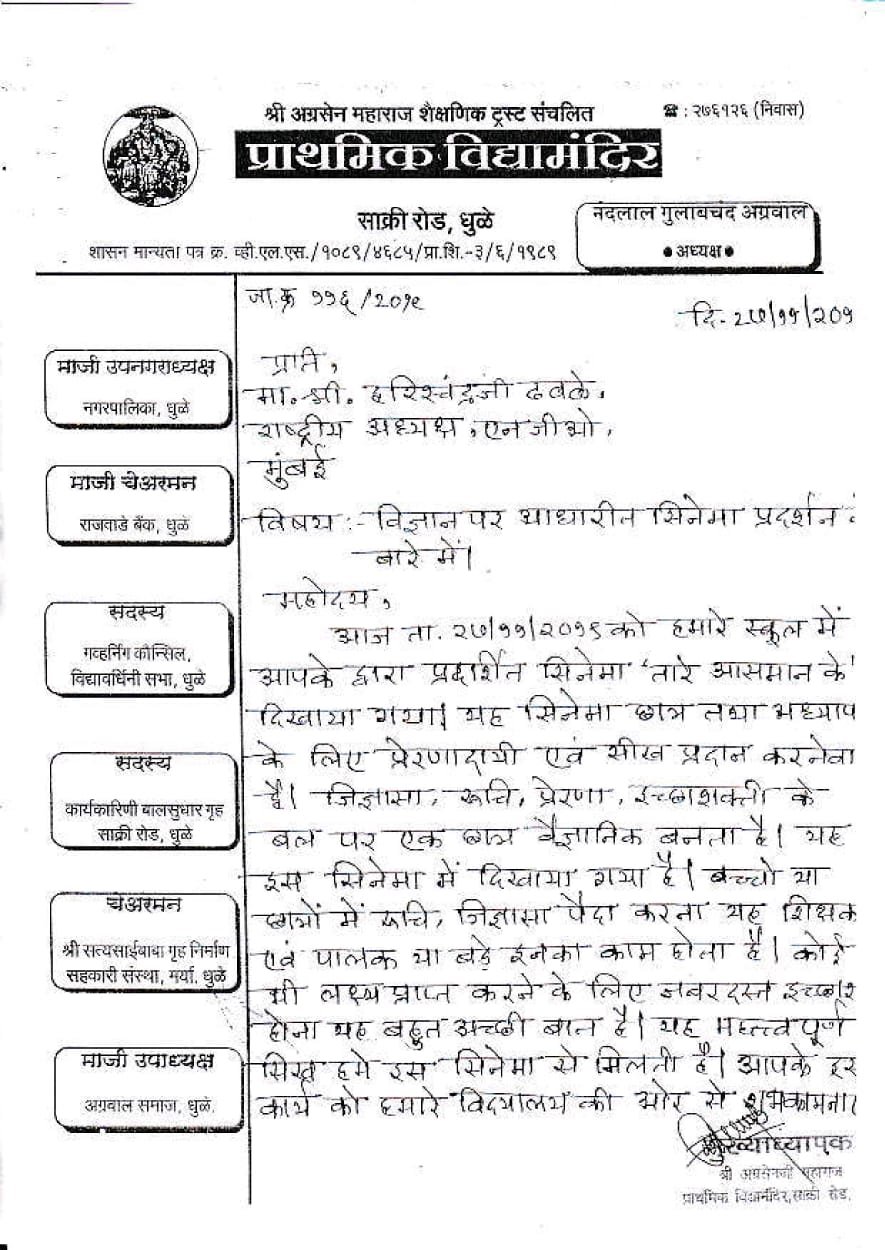 श्री अग्रसेन महाराज शैक्षणिक ट्रस्ट संचलित
☎ : २७६१२६ (निवास)
प्राथमिक विद्यामंदिर
साक्री रोड, धुळे
नंदलाल गुलाबचंद अग्रवाल
● अध्यक्ष ●
शासन मान्यता पत्र क्र. व्ही.एल.एस./१०८९/४६८५/प्रा.शि.-३/६/१९८९
जा.क्र ११६/२०१९
दि.- २७/११/२०१
माजी उपनगराध्यक्ष
नगरपालिका, धुळे
माजी चेअरमन
राजवाडे बैंक, धुळे
सदस्य
गव्हर्निंग कौन्सिल,
विद्यावर्धिनी सभा, धुळे
सदस्य
कार्यकारिणी बालसुधार गृह
साक्री रोड, धुळे
चेअरमन
श्री सत्यसाईबाबा गृह निर्माण
सहकारी संस्था, मर्या, धुळे
माजी उपाध्यक्ष
अग्रवाल समाज, धुळे.
प्रति,
मा. श्री. हरिश्चंद्रजी ढवळे,
राष्ट्रीय अध्यक्ष, एनजीओ,
मुंबई
विषय :- विज्ञान पर आधारीत सिनेमा प्रदर्शन
बारे में।
महोदय,
आज ता. २७/११/२०१९ को हमारे स्कूल में
आपके द्वारा प्रदर्शित सिनेमा 'तारे आसमान के'
दिखाया गया। यह सिनेमा छात्र तथा अध्याप
के लिए प्रेरणादायी एवं सीख प्रदान करनेवा
है। जिज्ञासा, रूचि, प्रेरणा, इच्छाशक्ती के
बल पर एक छात्र वैज्ञानिक बनता है। यह
इस सिनेमा में दिखाया गया है। बच्चो या
छात्रों में रूचि, जिज्ञासा पैदा करना यह शिक्षक
एवं पालक या बड़े इनका काम होता है। कोई
भी लक्ष्य प्राप्त करने के लिए जबरदस्त इच्छा
होना यह बहुत अच्छी बात है। यह महत्त्वपूर्ण
सिख हमे इस सिनेमा से मिलती है। आपके इस
कार्य को हमारे विद्यालय की ओर से शुभकामना।
मुख्याध्यापक
श्री अग्रसेनजी महाराज
प्राथमिक विद्यामंदिर, साक्री रोड,